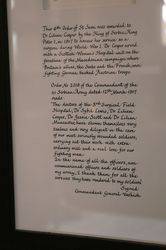 This 4th Order of St Sava was awarded to
Dr Lilian Cooper by the King of Serbia, King
Peter I, in 1917 to honour her service as a
surgeon during World War I. Dr Cooper served
with a Scottish Women's Hospital unit on the
frontline of the Macedonian campaign where
Britain's allies, the Serbs and the French, were
fighting German backed Austrian troops.
Order No 2108 of the Commandant of the
Serbian Army dated 12th March 1917
reads
The doctors of the Field
Hospital, Dr Sybil Lewis, Dr Lilian
Cooper, Dr Jessie Scott and Dr Lilian
have shown themselves very
zealous and very diligent in the care
of our most seriously wounded soldiers,
carrying out their work with extra-
ordinary skill and a real love for our
fighting men.
In the name of all the officers, non
commissioned officers and soldiers of
my army, I thank them for all the
services they have rendered to my soldiers
Signed:
Commandant General